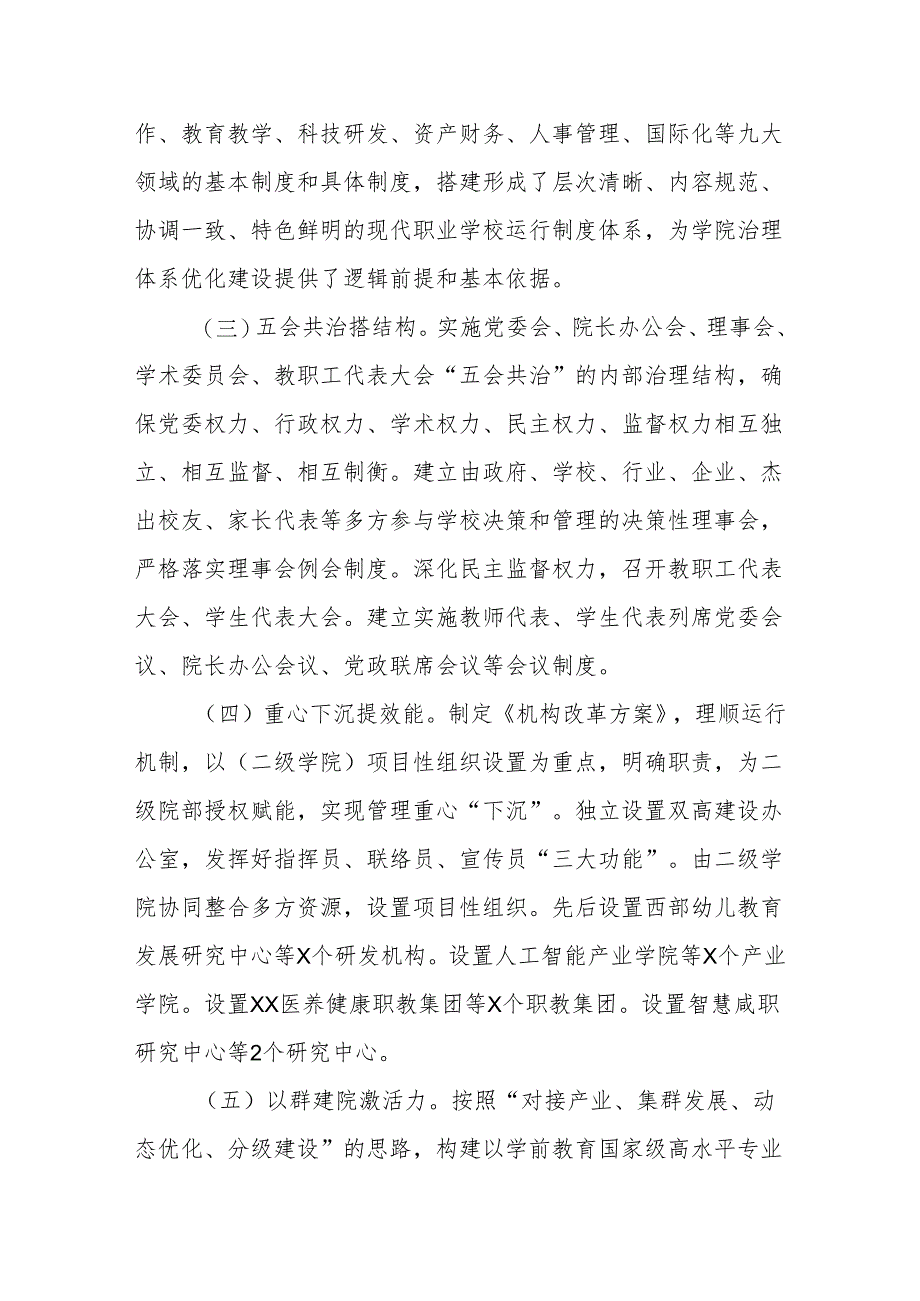 作、教育教学、科技研发、资产财务、人事管理、国际化等九大
领域的基本制度和具体制度，搭建形成了层次清晰、内容规范、
协调一致、特色鲜明的现代职业学校运行制度体系，为学院治理
体系优化建设提供了逻辑前提和基本依据。
（三）五会共治搭结构。实施党委会、院长办公会、理事会、
学术委员会、教职工代表大会“五会共治”的内部治理结构，确
保党委权力、行政权力、学术权力、民主权力、监督权力相互独
立、相互监督、相互制衡。建立由政府、学校、行业、企业、杰
出校友、家长代表等多方参与学校决策和管理的决策性理事会，
严格落实理事会例会制度。深化民主监督权力，召开教职工代表
大会、学生代表大会。建立实施教师代表、学生代表列席党委会
议、院长办公会议、党政联席会议等会议制度。
（四）重心下沉提效能。制定《机构改革方案》，理顺运行
机制，以（二级学院）项目性组织设置为重点，明确职责，为二
级院部授权赋能，实现管理重心“下沉”。独立设置双高建设办
公室，发挥好指挥员、联络员、宣传员“三大功能”。由二级学
院协同整合多方资源，设置项目性组织。先后设置西部幼儿教育
发展研究中心等X个研发机构。设置人工智能产业学院等X个产业
学院。设置XX医养健康职教集团等X个职教集团。设置智慧咸职
研究中心等2个研究中心。
（五）以群建院激活力。按照“对接产业、集群发展、动
态优化、分级建设”的思路，构建以学前教育国家级高水平专业